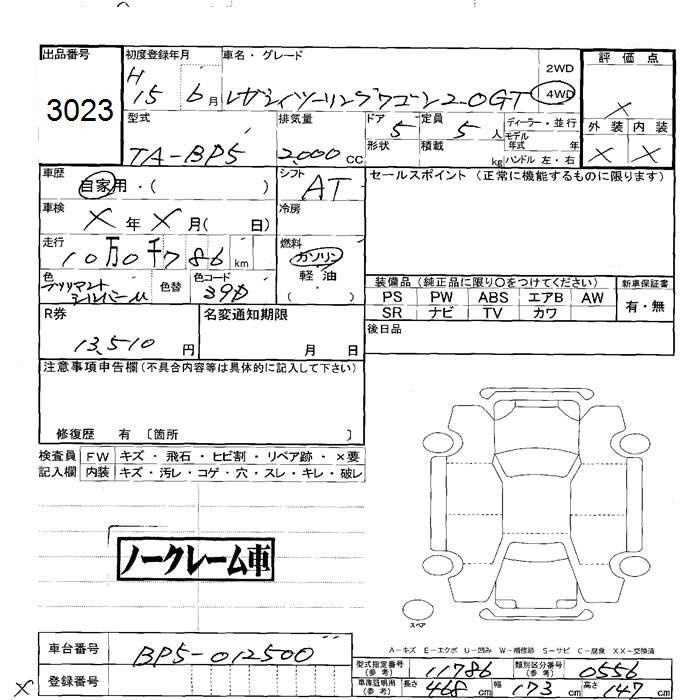 出品番号
3023
初度登録年月
H 15 6月
車名・グレード
レガシィツーリングワゴン2.0GT
2WD
4WD
評価点
×
外装 内装
× ×
型式
TA-BP5
排気量
2,000 CC
ドア 5
形状
定員 5 人
積載 kg
ディーラー・並行
モデル年式 年
ハンドル 左・右
車歴
自家用・( )
シフト
AT
車検
× 年 × 月( 日)
冷房
走行
10万0千786 km
燃料
ガソリン
軽油
( )
色
シルバーM
色替
色コード
39D
R券
13,510 円
名変通知期限
月 日
セールスポイント (正常に機能するものに限ります)
装備品 (純正品に限り○をつけてください)
PS PW ABS エアB AW
SR ナビ TV カワ
新車保証書
有・無
後日品
注意事項申告欄 (不具合内容等は具体的に記入して下さい)
修復歴 有 〔箇所 〕
検査員 FW キズ・飛石・ヒビ割・リペア跡・×要
記入欄 内装 キズ・汚レ・コゲ・穴・スレ・キレ・破レ
ノークレーム車
スペア
A-キズ E-エクボ U-凹み W-補修跡 S-サビ C-腐食 XX-交換済
車台番号
BP5-012500
登録番号
×
型式指定番号(参考) 11786
類別区分番号(参考) 0556
車庫証明用(参考) 長さ 468 cm 幅 173 cm 高さ 147 cm